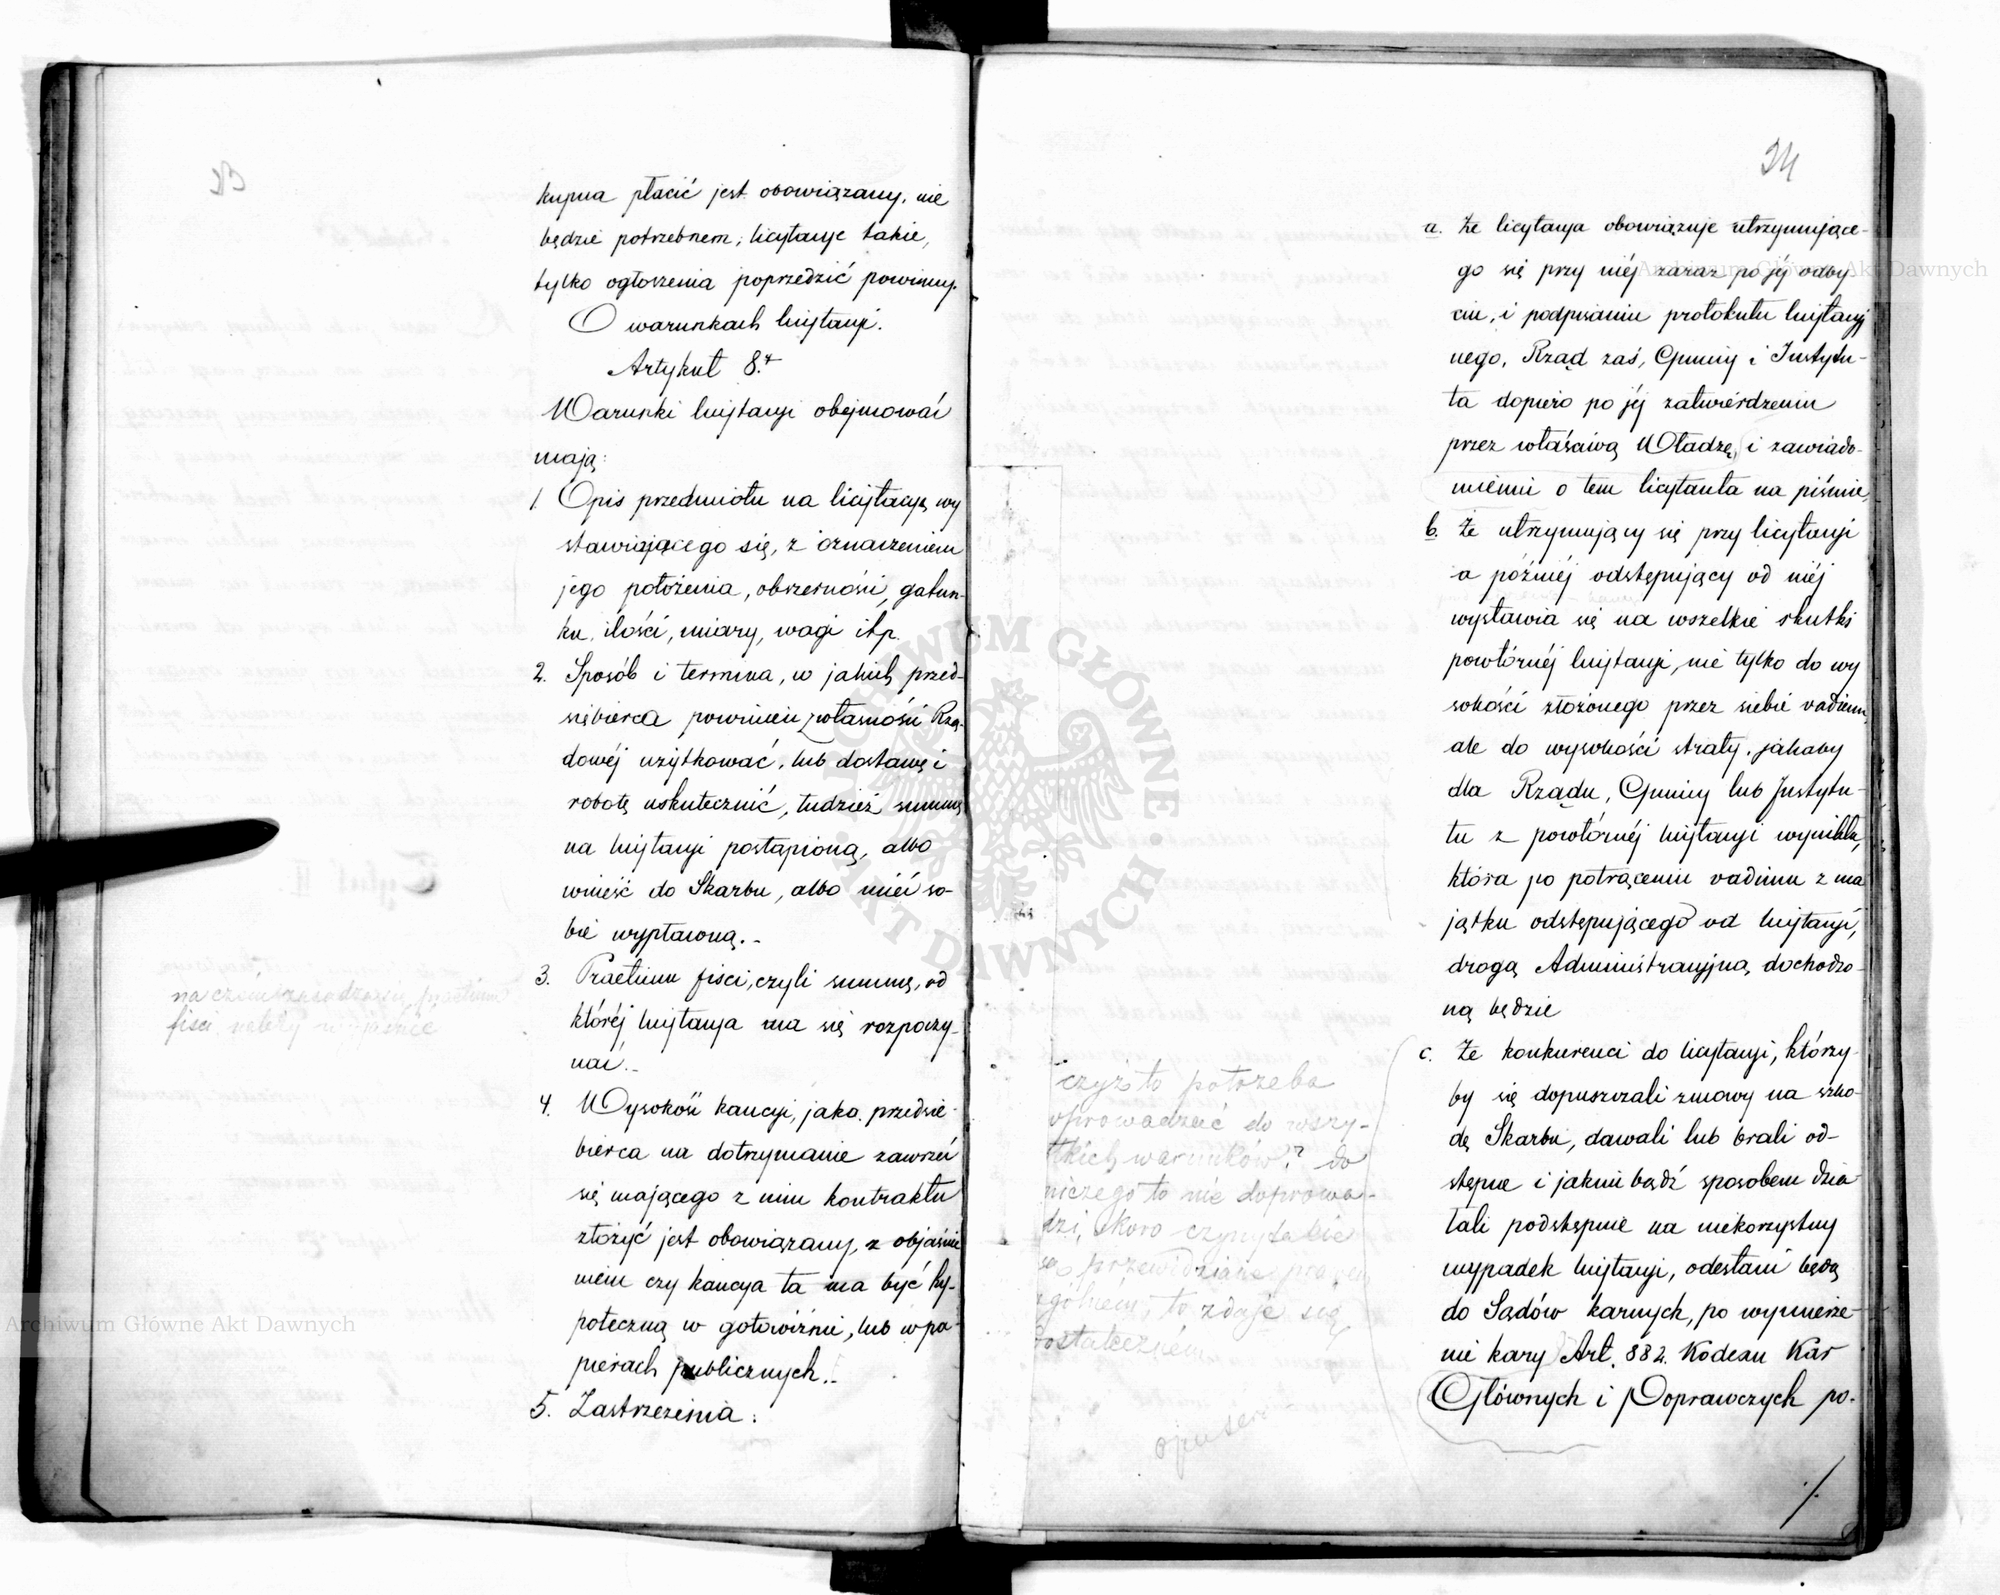 kupna płacić jest obowiązany, nie
będzie potrzebnem; licytacye takie,
tylko ogłoszenia poprzedzić powinny.
O warunkach licytacyi.
Artykuł 8.
Warunki licytacyi obejmować
mają:
1. Opis przedmiotu na licytacyą wy
stawiającego się, z oznaczeniem
jego położenia, obszerności, gatun-
ku, ilości, miary, wagi itp.
2. Sposób i termina, w jakich przed-
siębierca powinien własności Rzą-
dowéj użytkować, lub dostawę i
robotę uskutecznić, tudzież summę
na licytacyi postąpioną, albo
wnieść do Skarbu, albo mieć so-
bie wypłaconą.
3. Praetium fisci, czyli summę, od
któréj licytacya ma się rozpoczy-
nać.
4. Wysokość kaucyi, jaką przedsię-
bierca na dotrzymanie zawrzeć
się mającego z nim kontraktu
złożyć jest obowiązany, z objaśnie
niem czy kaucya ta ma być hy-
poteczną w gotowiźnie, lub w pa-
pierach publicznych.
5. Zastrzeżenia:
na czém zasadza się praetium
fisci należy wyjaśnić
24
a. Że licytacya obowiązuje utrzymujące-
go się przy niéj zaraz po jéj odby
ciu, i podpisaniu protokułu licytacyj
nego, Rząd zaś, Gminy i Instytu-
ta dopiero po jéj zatwierdzeniu
przez właściwą Władzę, i zawiado-
mieniu o tem licytanta na piśmie,
b. Że utrzymujący się przy licytacyi
a później odstępujący od niéj
wystawia się na wszelkie skutki
powtórnéj licytacyi, nie tylko do wy
sokości złożonego przez siebie vadium,
ale do wysokości straty, jakaby
dla Rządu, Gminy lub Instytu-
tu z powtórnéj licytacyi wynikła,
która po potrąceniu vadium z ma
jątku odstępującego od licytacyi,
drogą Administracyjną dochodzo-
ną będzie
c. Że konkurenci do licytacyi, którzy-
by się dopuszczali zmowy na szko-
dę Skarbu, dawali lub brali od-
stępne i jakim bądź sposobem dzia
łali podstępnie na niekorzystny
wypadek licytacyi, odesłani będą
do Sądów karnych, po wymierze-
nie kary Art. 882. Kodexu Kar
Głównych i Poprawczych po-
czyż to potrzeba
wprowadzać do wszy-
stkich warunków? do
niczego to nie doprowa-
dzi, skoro czyny takie
są przewidziane prawem
ogólnem, to zdaje się
dostatecznem
Archiwum Główne Akt Dawnych
Archiwum Główne Akt Dawnych
ARCHIWUM GŁÓWNE AKT DAWNYCH